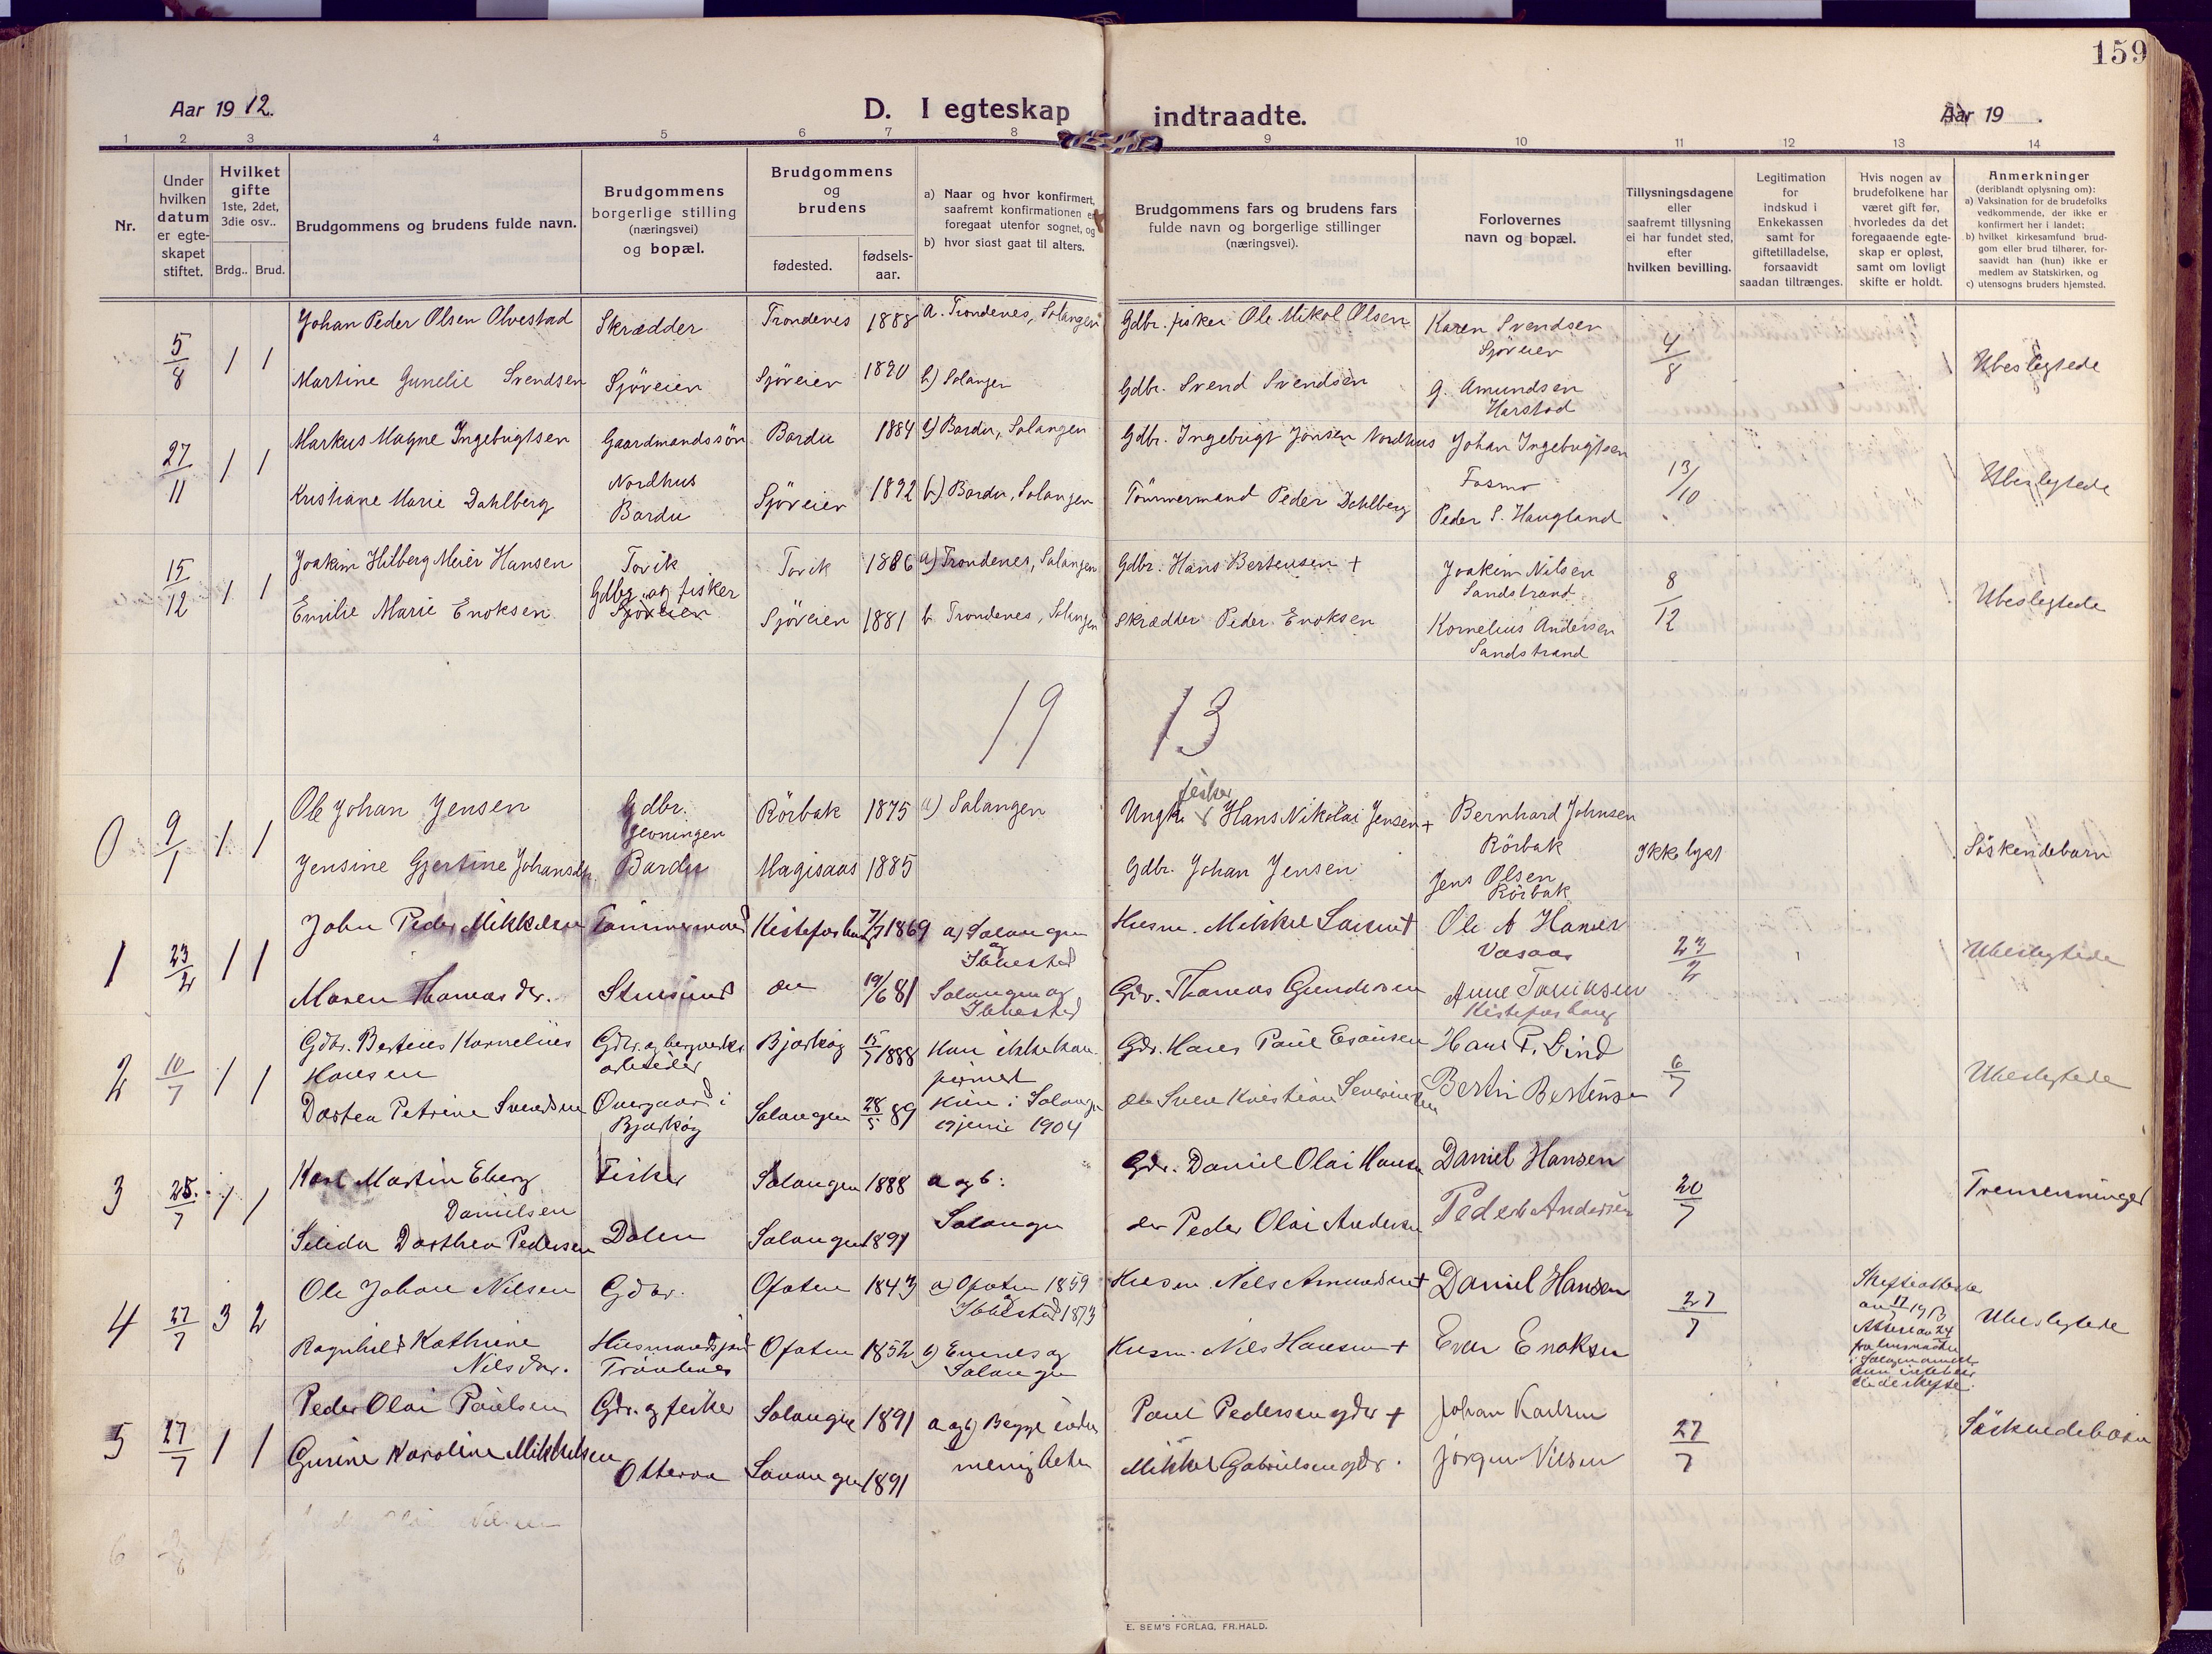 159
Aar 19 12.
D. I egteskap indtraadte.
Aar 19 .
1 2 3 4 5 6 7 8 9 10 11 12 13 14
Nr.
Under hvilken datum er egteskapet stiftet.
Hvilket gifte 1ste, 2det, 3die osv..
Brdg.. Brud.
Brudgommens og brudens fulde navn.
Brudgommens borgerlige stilling (næringsvei) og bopæl.
Brudgommens og brudens
fødested.
fødsels-aar.
a) Naar og hvor konfirmert, saafremt konfirmationen er foregaat utenfor sognet, og
b) hvor sidst gaat til alters.
Brudgommens fars og brudens fars fulde navn og borgerlige stillinger (næringsvei).
Forlovernes navn og bopæl.
Tillysningsdagene eller saafremt tillysning ei har fundet sted, efter hvilken bevilling.
Legitimation for indskud i Enkekassen samt for giftetilladelse, forsaavidt saadan tiltrænges.
Hvis nogen av brudefolkene har været gift før, hvorledes da det foregaaende egteskap er opløst, samt om lovligt skifte er holdt.
Anmerkninger (deriblandt oplysning om):
a) Vaksination for de brudefolks vedkommende, der ikke er konfirmert her i landet;
b) hvilket kirkesamfund brudgom eller brud tilhører, forsaavidt han (hun) ikke er medlem av Statskirken, og
c) utensogns bruders hjemsted.
5/8 1 1 Johan Peder Olsen Olvestad Skrædder Trondenes 1888 a. Trondenes, Salangen Gdbr. fisker Ole Mikal Olsen Karen Svendsen Sjøveien 4/8 Ubeslegtede
Martine Gunelie Svendsen Sjøveien Sjøveien 1890 b) Salangen Gdbr. Svend Svendsen G. Amundsen Harstad
27/11 1 1 Markus Magne Ingebrigtsen Gaardmandssøn Bardu 1884 a) Bardu, Salangen Gdbr. Ingebrigt Jonsen Nordhus Johan Ingebrigtsen Fosmo 13/10 Ubeslegtede
Kristiane Marie Dahlberg Nordhus Bardu Sjøveien 1892 b) Bardu, Salangen Tømmermand Peder Dahlberg Peder S. Haugland
15/12 1 1 Joakim Hilberg Meier Hansen Tovik Gdbr. og fisker Tovik 1886 a) Trondenes, Salangen Gdbr. Hans Bertensen + Joakim Nilsen Sandstrand 8/12 Ubeslegtede
Emilie Marie Enoksen Sjøveien Sjøveien 1881 b. Trondenes, Salangen Skrædder Peder Enoksen Kornelius Andersen Sandstrand
19 13
0 9/1 1 1 Ole Johan Jensen Gdbr. Jevningen Rörbak 1875 a) Salangen Ungk. fisker Hans Nikolai Jensen + Bernhard Johnsen Rörbak Ikke lyst Söskendebarn
Jensine Gjertine Johansdtr. Bardu Hagisaas 1885 Gdbr. Johan Jensen Jens Olsen Rörbak
1 23/2 1 1 John Peder Mikkelsen Tømmermand Kistefoshaug 7/7 1869 a) Salangen og Ibbestad Husm. Mikkel Larsen + Ole A Hansen Vasaas 23/2 Ubeslegtede
Maren Thomasdtr. 19/6 81 Salangen og Ibbestad Gdr. Thomas Gundersen Anne Kistefoshaug
2 10/7 1 1 Gdbr. Bertius Kornelius Hansen Gdbr. og bergverks arbeider Bjarköy 15/7 1888 Han ikke konfirmert Gdr. Hans Paul Esaiusen Hans P. Lind 6/7 Ubeslegtede
Dortea Petrine Svendsen Overgaard i Bjarköy Salangen 28/5 89 Hun i Salangen 19 juni 1904 do Svend Kristian Severinsen Bertin Bertensen
3 25/7 1 1 Karl Martin Eberg Danielsen Fisker Salangen 1888 a og b: Gdr. Daniel Olai Hansen Daniel Hansen 20/7 Tremenninger
Selida Dorthea Pedersen Dalen Salangen 1891 Salangen do Peder Olai Andersen Peder Andersen
4 27/7 3 2 Ole Johan Nilsen Gdbr. Ofoten 1843 a) Ofoten 1859 og Ibbestad 1873 Husm. Nils Amundsen + Daniel Hansen 27/7 Skifteattest av 17/7 1913 Ubeslegtede
Ragnhild Kathrine Nilsdtr. Ofoten 1852 b) Evenes og Salangen Husm. Nils Hansen + Evan Enoksen
5 27/7 1 1 Peder Olai Paulsen Gdr. og fisker Salangen 1891 a og b) Begge i menigheten Paul Pedersen gdr + Johan Karlsen 27/7 Söskendebarn
Gurine Karoline Mikkelsen Otteraa Lavangen 1891 Mikkel Gabrielsen gdr. Jörgen Nilsen
6
E. SEM'S FORLAG, FR.HALD.